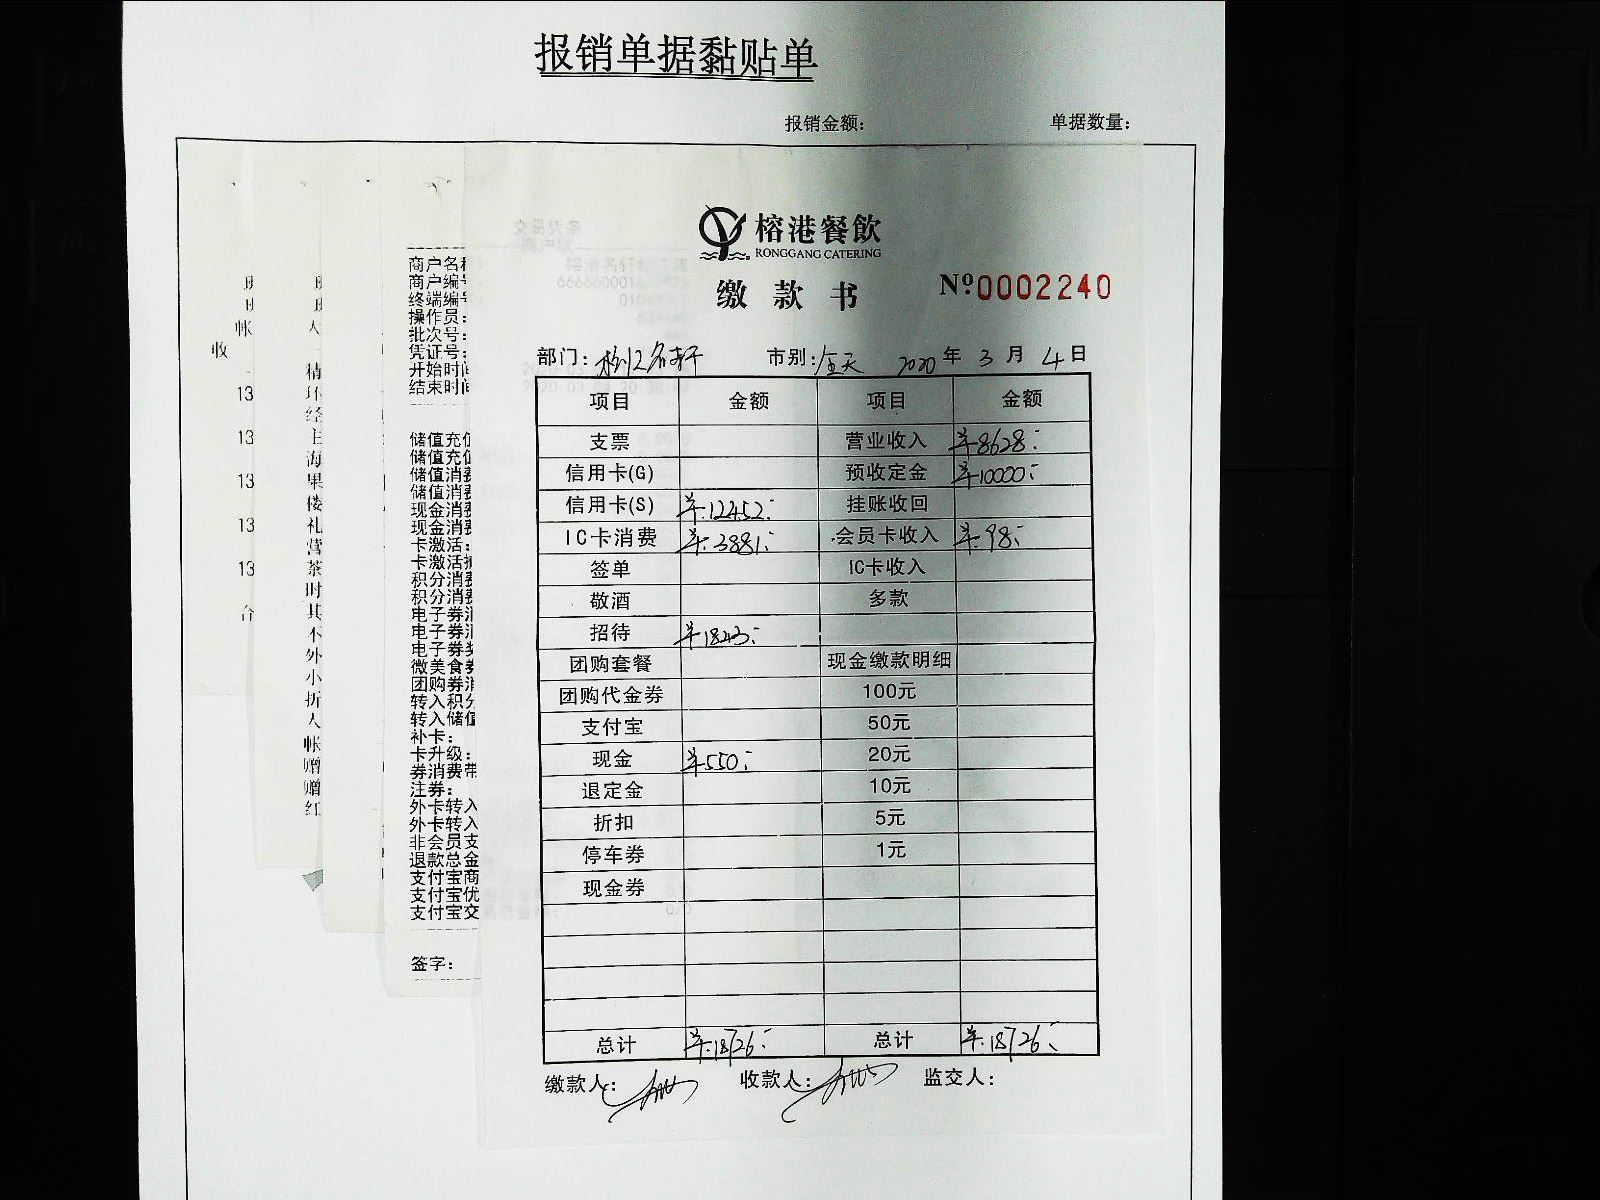 报销单据黏贴单
报销金额: 单据数量:
榕港餐飲
RONGGANG CATERING
缴款书 Nº0002240
部门: 市别: 全天 2020年3月4日
项目 金额 项目 金额
支票 营业收入 ¥8628:
信用卡(G) 预收定金 ¥10000:
信用卡(S) ¥12452: 挂账收回
IC卡消费 ¥3881: 会员卡收入 ¥98:
签单 IC卡收入
敬酒 多款
招待 ¥1843:
团购套餐 现金缴款明细
团购代金券 100元
支付宝 50元
现金 ¥550: 20元
退定金 10元
折扣 5元
停车券 1元
现金券
总计 ¥18726: 总计 ¥18726:
缴款人: 收款人: 监交人:
商户名
商户编
终端编
操作员:
批次号:
凭证号:
开始时
结束时
储值充
储值充
储值消
储值消
现金消
现金消
卡激活:
卡激活
积分消
积分消
电子券
电子券
电子券
微美食
团购券
转入积
转入储值
补卡:
卡升级:
券消费带
注券:
外卡转入
外卡转入
非会员支
退款总金
支付宝商
支付宝优
支付宝交
签字:
精
经
主
海
果
楼
礼
营
茶
时
其
不
外
小
折
人
帐
赠
赠
红
帐
收
13
13
13
13
13
合